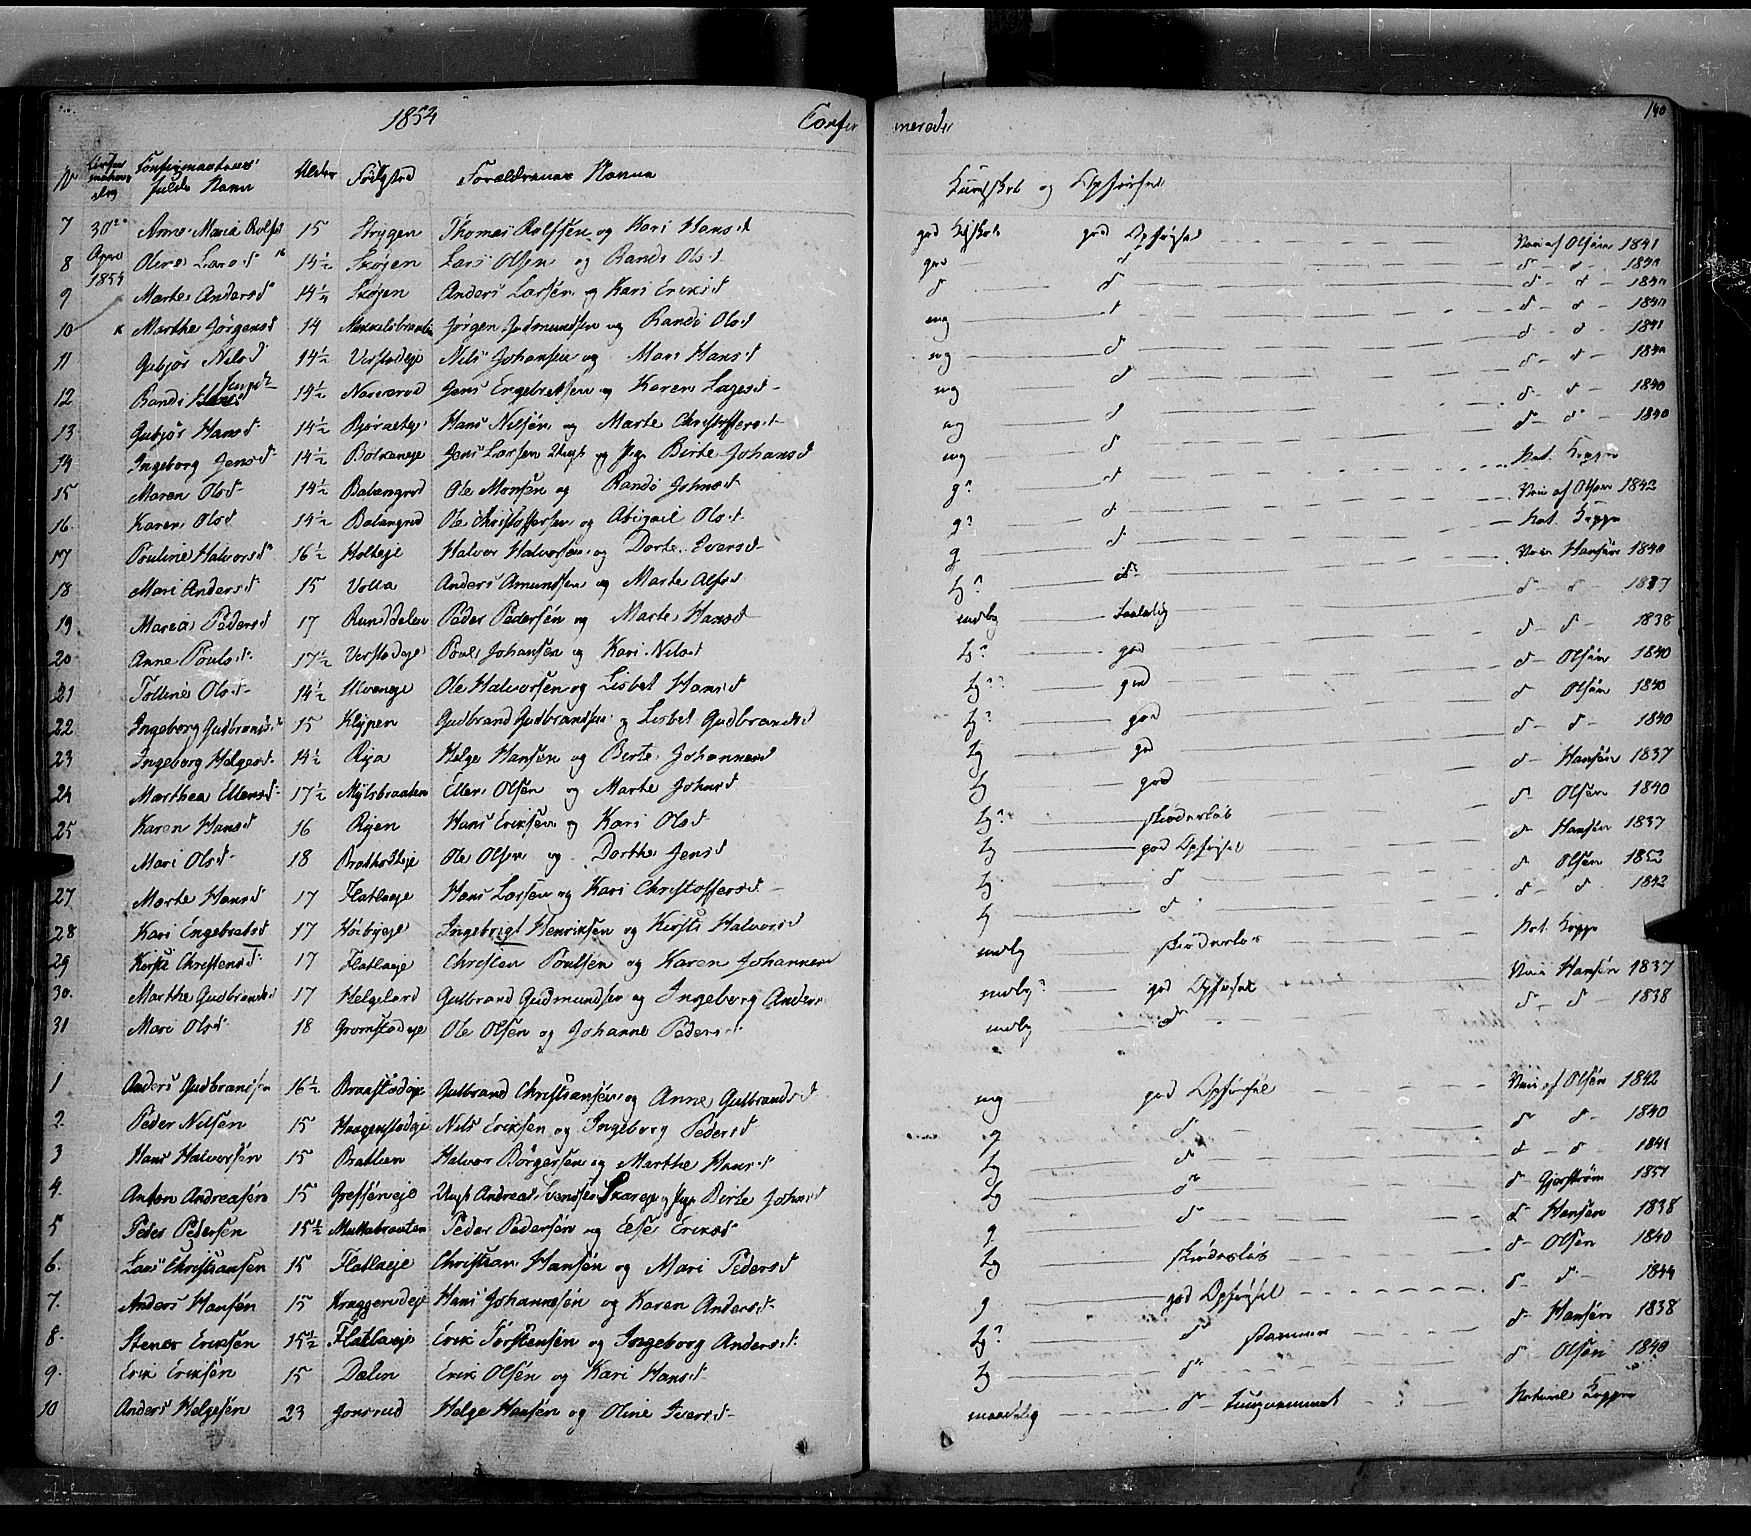 1854 Confir merede 140
No Confirmations dag Confirmanternes fulde Navn Alder Fødested Forældrenes Navne Kundskab og Opførsel
7 30te Anne Maria Rolfsd 15 Strygen Thomas Rolfsen og Kari Hansd god Kdskab god Opførsel Vac af Olsen 1841
8 April Oline Larsd 14½ Skøyen Lars Olsen og Randi Olsd god d d d 1840
9 1854 Marte Andersd 14¼ Skøyen Anders Larsen og Kari Eriksd d d d d 1840
10 Marthe Jørgensd 14 Jørgen Gudmundsen og Randi Olsd mg d d d 1840
11 Gubjør Nilsd 14½ Verstadeje Nils Johansen og Mari Hansd mg d d d 1841
12 Randi Jensd 14½ Narverud Jens Engebretsen og Karen Lagesd mg d d d 1840
13 Gubjør Hansd 14½ Hans Nilsen og Marte Christoffersd mg d d d 1840
14 Ingeborg Jensd 14½ Jens Larsen Ungk og Pige Birte Johansd mg d d d 1840
15 Maren Olsd 14½ Balangrud Ole Monsen og Randi Johnsd g? d Nat. Kopper
16. Karen Olsd 14½ Balangrud Ole Christoffersen og Abigael Olsd g? d Vac af Olsen 1842
17 Pouline Halvorsd 16½ Holteje Halvor Halvorsen og Dorte Iversd g d Nat. Kopper
18 Mari Andersd 15 Volla Anders Amundsen og Marte Alfsd tg? d Vac Hansen 1840
19. Marea Pedersd 17 Runddelen Peder Pedersen og Marte Hansd mdlg taalelig d d 1837
20 Anne Poulsd 17½ Verstadeje Poul Johansen og Kari Nilsd tg? god d d 1838
21 Tolline Olsd 14½ Ulveneje Ole Halvorsen og Lisbet Hansd tg?? god d Olsen 1840
22 Ingeborg Gudbrandsd 15 Klypen Gudbrand Gudbrandsen og Lisbet Gudbrandsd tg? god d Olsen 1840
23 Ingeborg Helgesd 14½ Rya Helge Hansen og Berte Johannesd tg god d d 1840
24 Marthea Ellensd 17½ Mylsbraaten Ellen Olsen og Marte Johnsd tg god d Hansen 1837
25 Karen Hansd 16 Ryen Hans Eriksen og Kari Olsd tg? skjødesløs d Olsen 1840
Mari Olsd 18 Ole Olsen og Dorthe Jensd tg god Opførsel d Hansen 1837
27 Marte Hansd 17 Flatlaeje Hans Larsen og Kari Christoffersd tg d d Olsen 1852
28 Kari Engebretsd 17 Høibyeje Ingebrigt Henriksen og Kirsti Halvorsd tg d d d 1842
29 Kirsti Christensd 17 Flatlaeje Christen Poulsen og Karen Johannesd mdlg skjødesløs Nat. Kopper
30. Marthe Gudbrandsd 17 Helgeland Gulbrand Gudmundsen og Ingeborg Anders mdlg? god Opførsel Vac Hansen 1837
31 Mari Olsd 18 Gromstadeje Ole Olsen og Johanne Pedersd mdlg d d d 1838
1 Anders Gudbrandsen 16½ Braastadeje Gulbrand Christiansen og Anne Gulbrandsd mg god Opførsel Vac af Olsen 1842
2 Peder Nilsen 15 Haagenstadeje Nils Eriksen og Ingeborg Pedersd g d d d 1840
3 Hans Halvorsen 15 Bratlien Halvor Børgersen og Marthe Hansd tg d d d 1841
4. Anton Andreasen 15 Grefseneje Ungk Andreas Svendsen Skareje og Pige Birte Johnsd tg d d Gjerstrøm 1851
5 Peder Pedersen 15½ Mukkabraaten Peder Pedersen og Else Eriksd g d d Hansen 1838
6. Lars Christiansen 15 Flatlaeje Christian Hansen og Mari Pedersd tg skjødesløs d Olsen 1840
7. Anders Hansen 15 Kraggerudeje Hans Johannesen og Karen Andersd g god Opførsel d d 1844
8. Stener Eriksen 15½ Flatlaeje Erik Torstensen og Ingeborg Andersd tg? d d Hansen 1838
9. Erik Eriksen 15 Dælin Erik Olsen og Kari Hansd tg d d Olsen 1840
10 Anders Helgesen 23 Jonsrud Helge Hansen og Oline Iversd maadelig d tungnemmet Naturlige Kopper